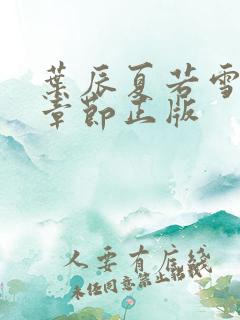 葉辰夏若雪
章節正版
人要有底綫
未经同意禁止转载